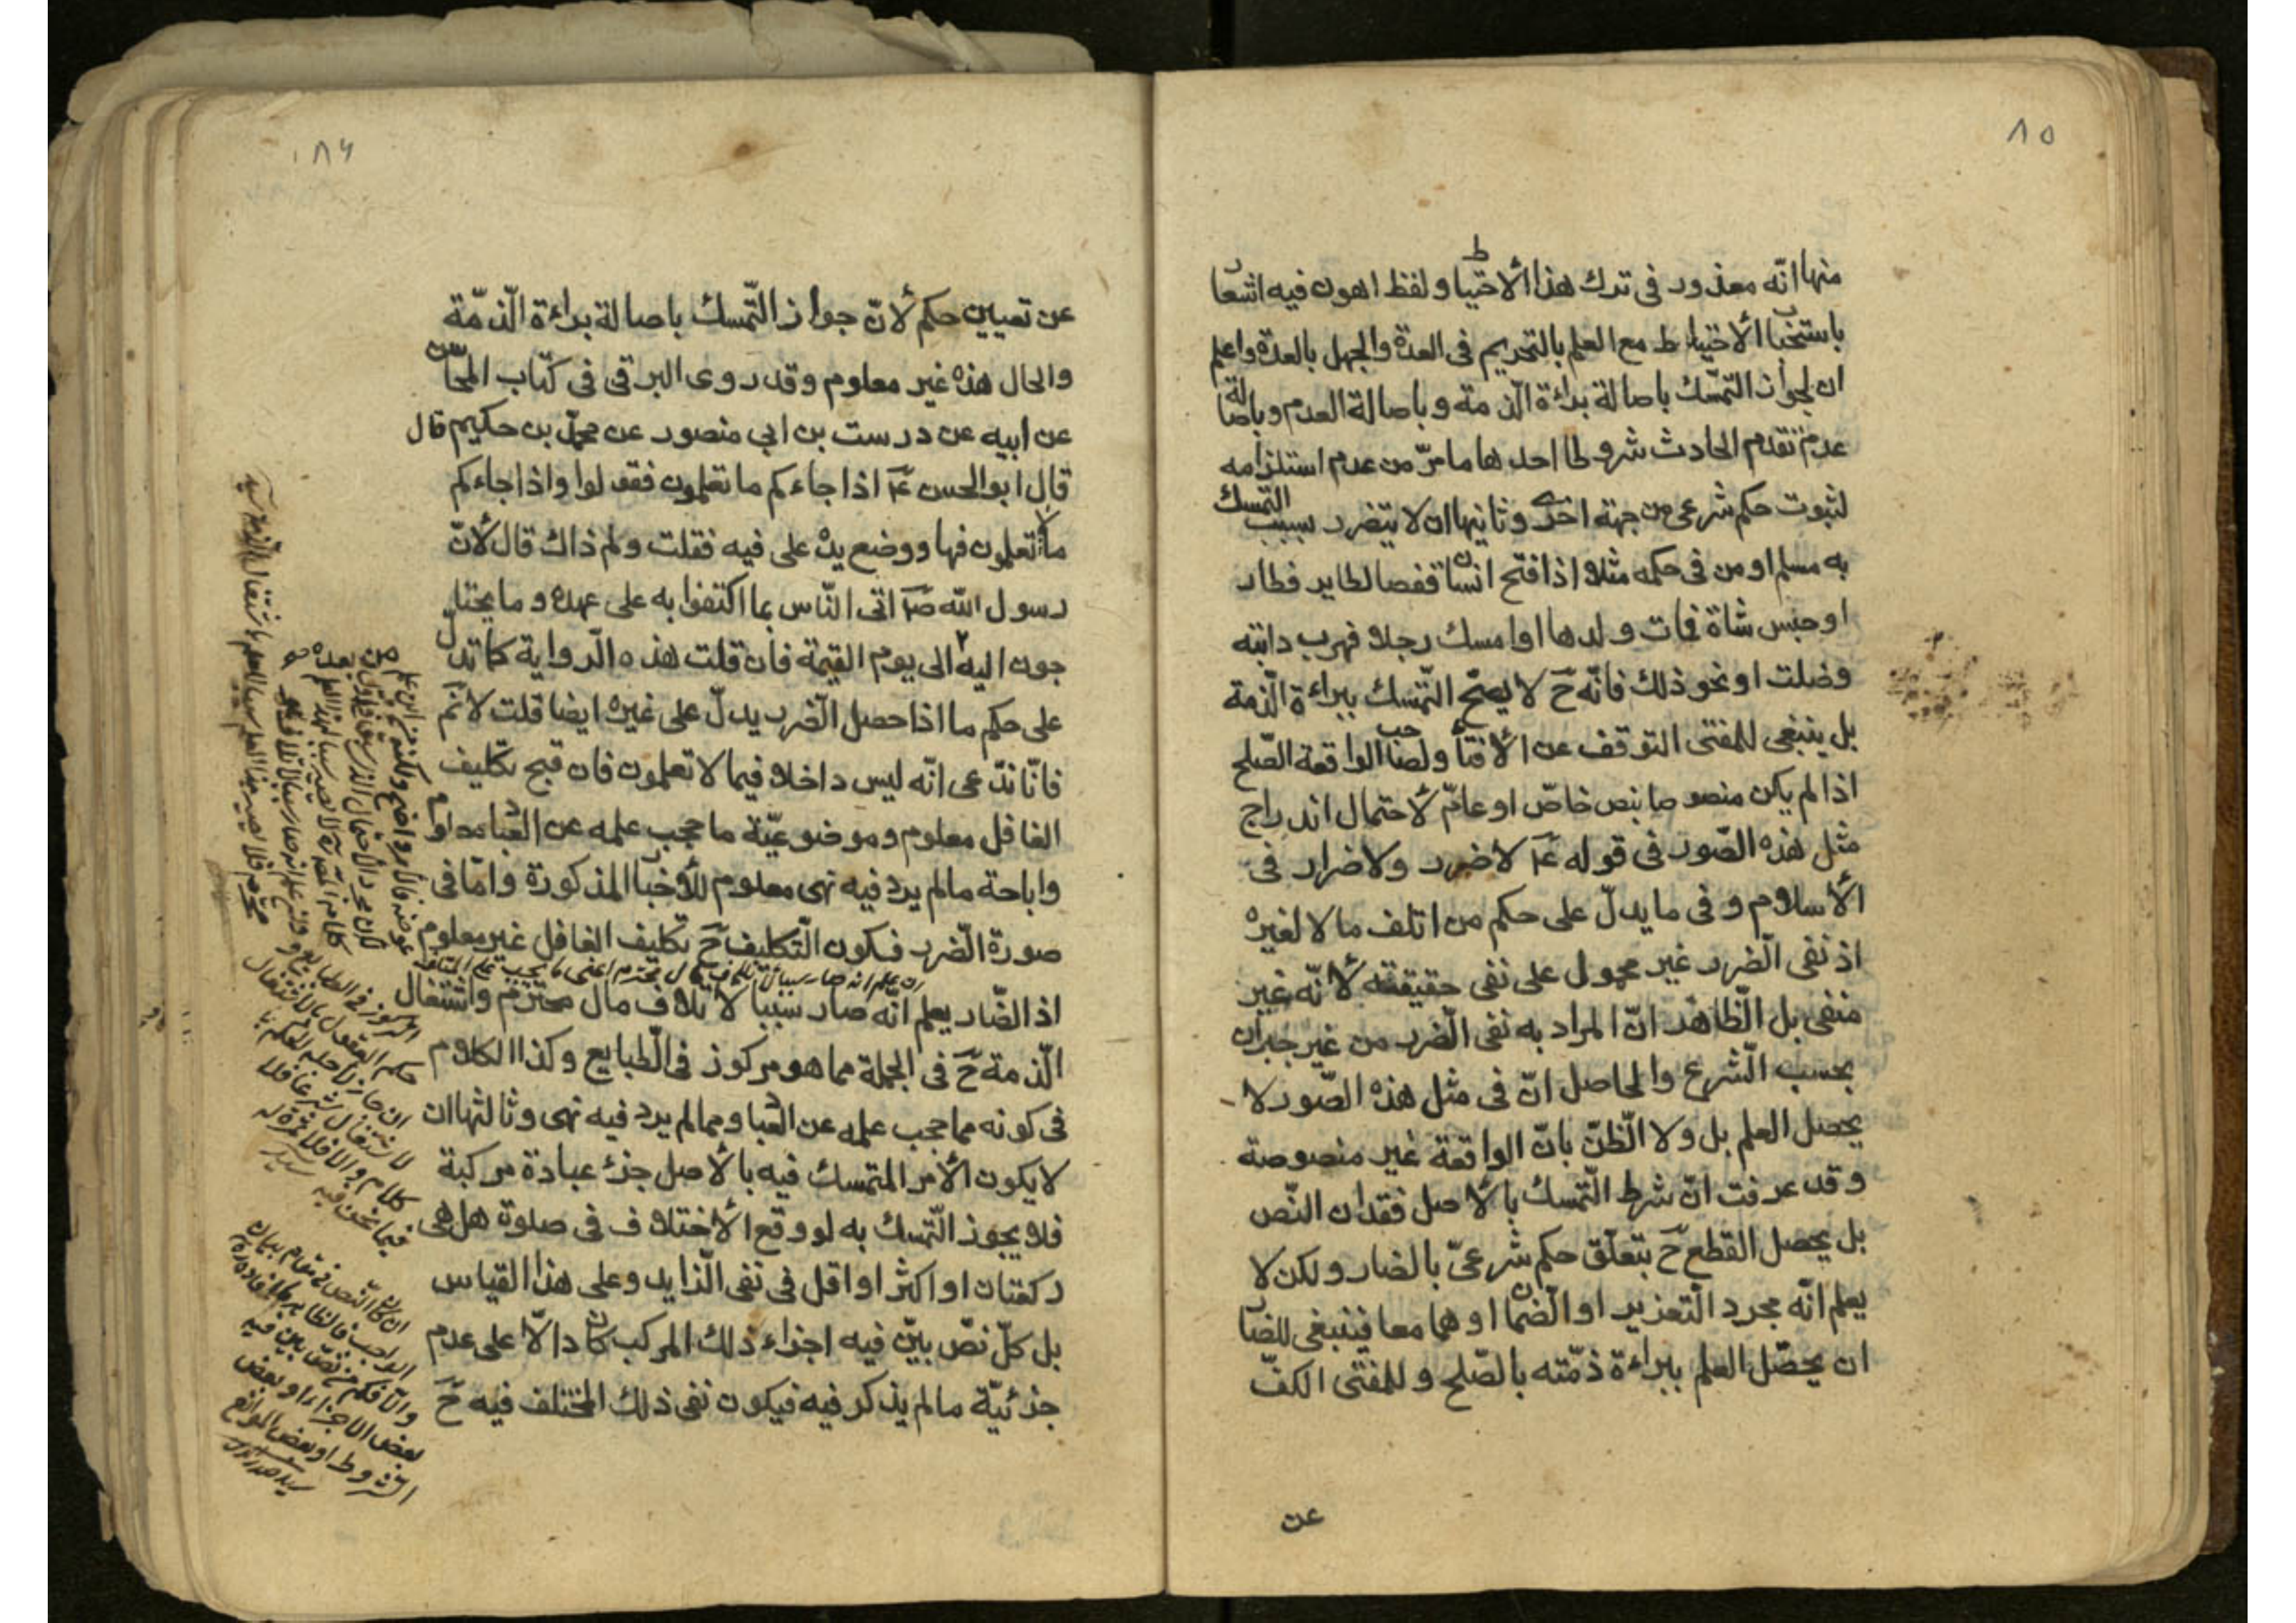 ٨٥
منها انّه معذور في ترك هذا الاحتياط ولفظ اهون فيه اشعار
باستحباب الاحتياط مع العلم بالتحريم في العدة والجهل بالعدة واعلم
ان لجواز التمسّك باصالة براءة الذمة وباصالة العدم وباصالة
عدم تقدم الحادث شروطا احدها ما مرّ من عدم استلزامه
لثبوت حكم شرعى من جهة اخرى وثانيها ان لا يتضرر بسبب التمسك
به مسلم او من في حكمه مثلا اذا فتح انسان قفصا لطاير فطار
او حبس شاة فمات ولدها او امسك رجلا فهرب دابته
وضلت او نحو ذلك فانّه ح لا يصحّ التمسك ببراءة الذمة
بل ينبغى للمفتى التوقف عن الافتاء ولصاحب الواقعة الصّلح
اذا لم يكن منصوصا بنص خاصّ او عامّ لاحتمال اندراج
مثل هذه الصّور في قوله ع لا ضرر ولا ضرار في
الاسلام و في ما يدلّ على حكم من اتلف مالا لغيره
اذ نفى الضّرر غير محمول على نفى حقيقته لانّه غير
منفى بل الظّاهر انّ المراد به نفى الضّرر من غير جبران
بحسب الشّرع والحاصل انّ في مثل هذه الصّور لا
يحصل العلم بل ولا الظّنّ بانّ الواقعة غير منصوصة
وقد عرفت انّ شرط التّمسك بالاصل فقدان النّص
بل يحصل القطع ح بتعلّق حكم شرعىّ بالضار ولكن لا
يعلم انّه مجرد التّعزير او الضّمان او هما معا فينبغى للضّار
ان يحصّل العلم ببراءة ذمّته بالصّلح وللمفتى الكفّ
عن
٨٦
عن تعيين حكم لانّ جواز التّمسك باصالة براءة الذّمّة
والحال هذه غير معلوم وقد روى البرقى في كتاب المحاسن
عن ابيه عن درست بن ابي منصور عن محمد بن حكيم قال
قال ابو الحسن ع اذا جاءكم ما تعلمون فقولوا واذا جاءكم
ما لا تعلمون فها ووضع يده على فيه فقلت ولم ذاك قال لانّ
رسول الله ص اتى النّاس بما اكتفوا به على عهده وما يحتا
جون اليه الى يوم القيمة فان قلت هذه الرّواية كما تدلّ
على حكم ما اذا حصل الضّرر يدلّ على غيره ايضا قلت لا نم
فانّا ندّعى انّه ليس داخلا فيما لا تعلمون فان قبح تكليف
الغافل معلوم وموضوعيّة ما حجب علمه عن العباد معلوم
واباحة ما لم يرد فيه نهى معلوم للاخبار المذكورة وامّا في
صورة الضّرر فكون التّكليف ح تكليف الغافل غير معلوم
اذ الضّار يعلم انّه صار سببا لاتلاف مال محترم واشتغال
الذّمة ح في الجملة مما هو مركوز في الطّبايع وكذا الكلام
في كونه مما حجب علمه عن العباد ومما لم يرد فيه نهى وثالثها ان
لا يكون الامر المتمسك فيه بالاصل جزء عبادة مركبة
فلا يجوز التّمسك به لو وقع الاختلاف في صلوة هل هى
ركعتان او اكثر او اقل في نفى الزّايد وعلى هذا القياس
بل كلّ نصّ بيّن فيه اجزاء ذلك المركب كان دالّا على عدم
جزئيّة ما لم يذكر فيه فيكون نفى ذلك المختلف فيه ح
المركوز في الطبايع و
حكم العقول بالاشتغال
ان كان النّص في مقام بيان
الواجب فالظاهر
والّا فكم من نصّ بين فيه
بعض الاجزاء او بعض
الشروط او بعض الموانع